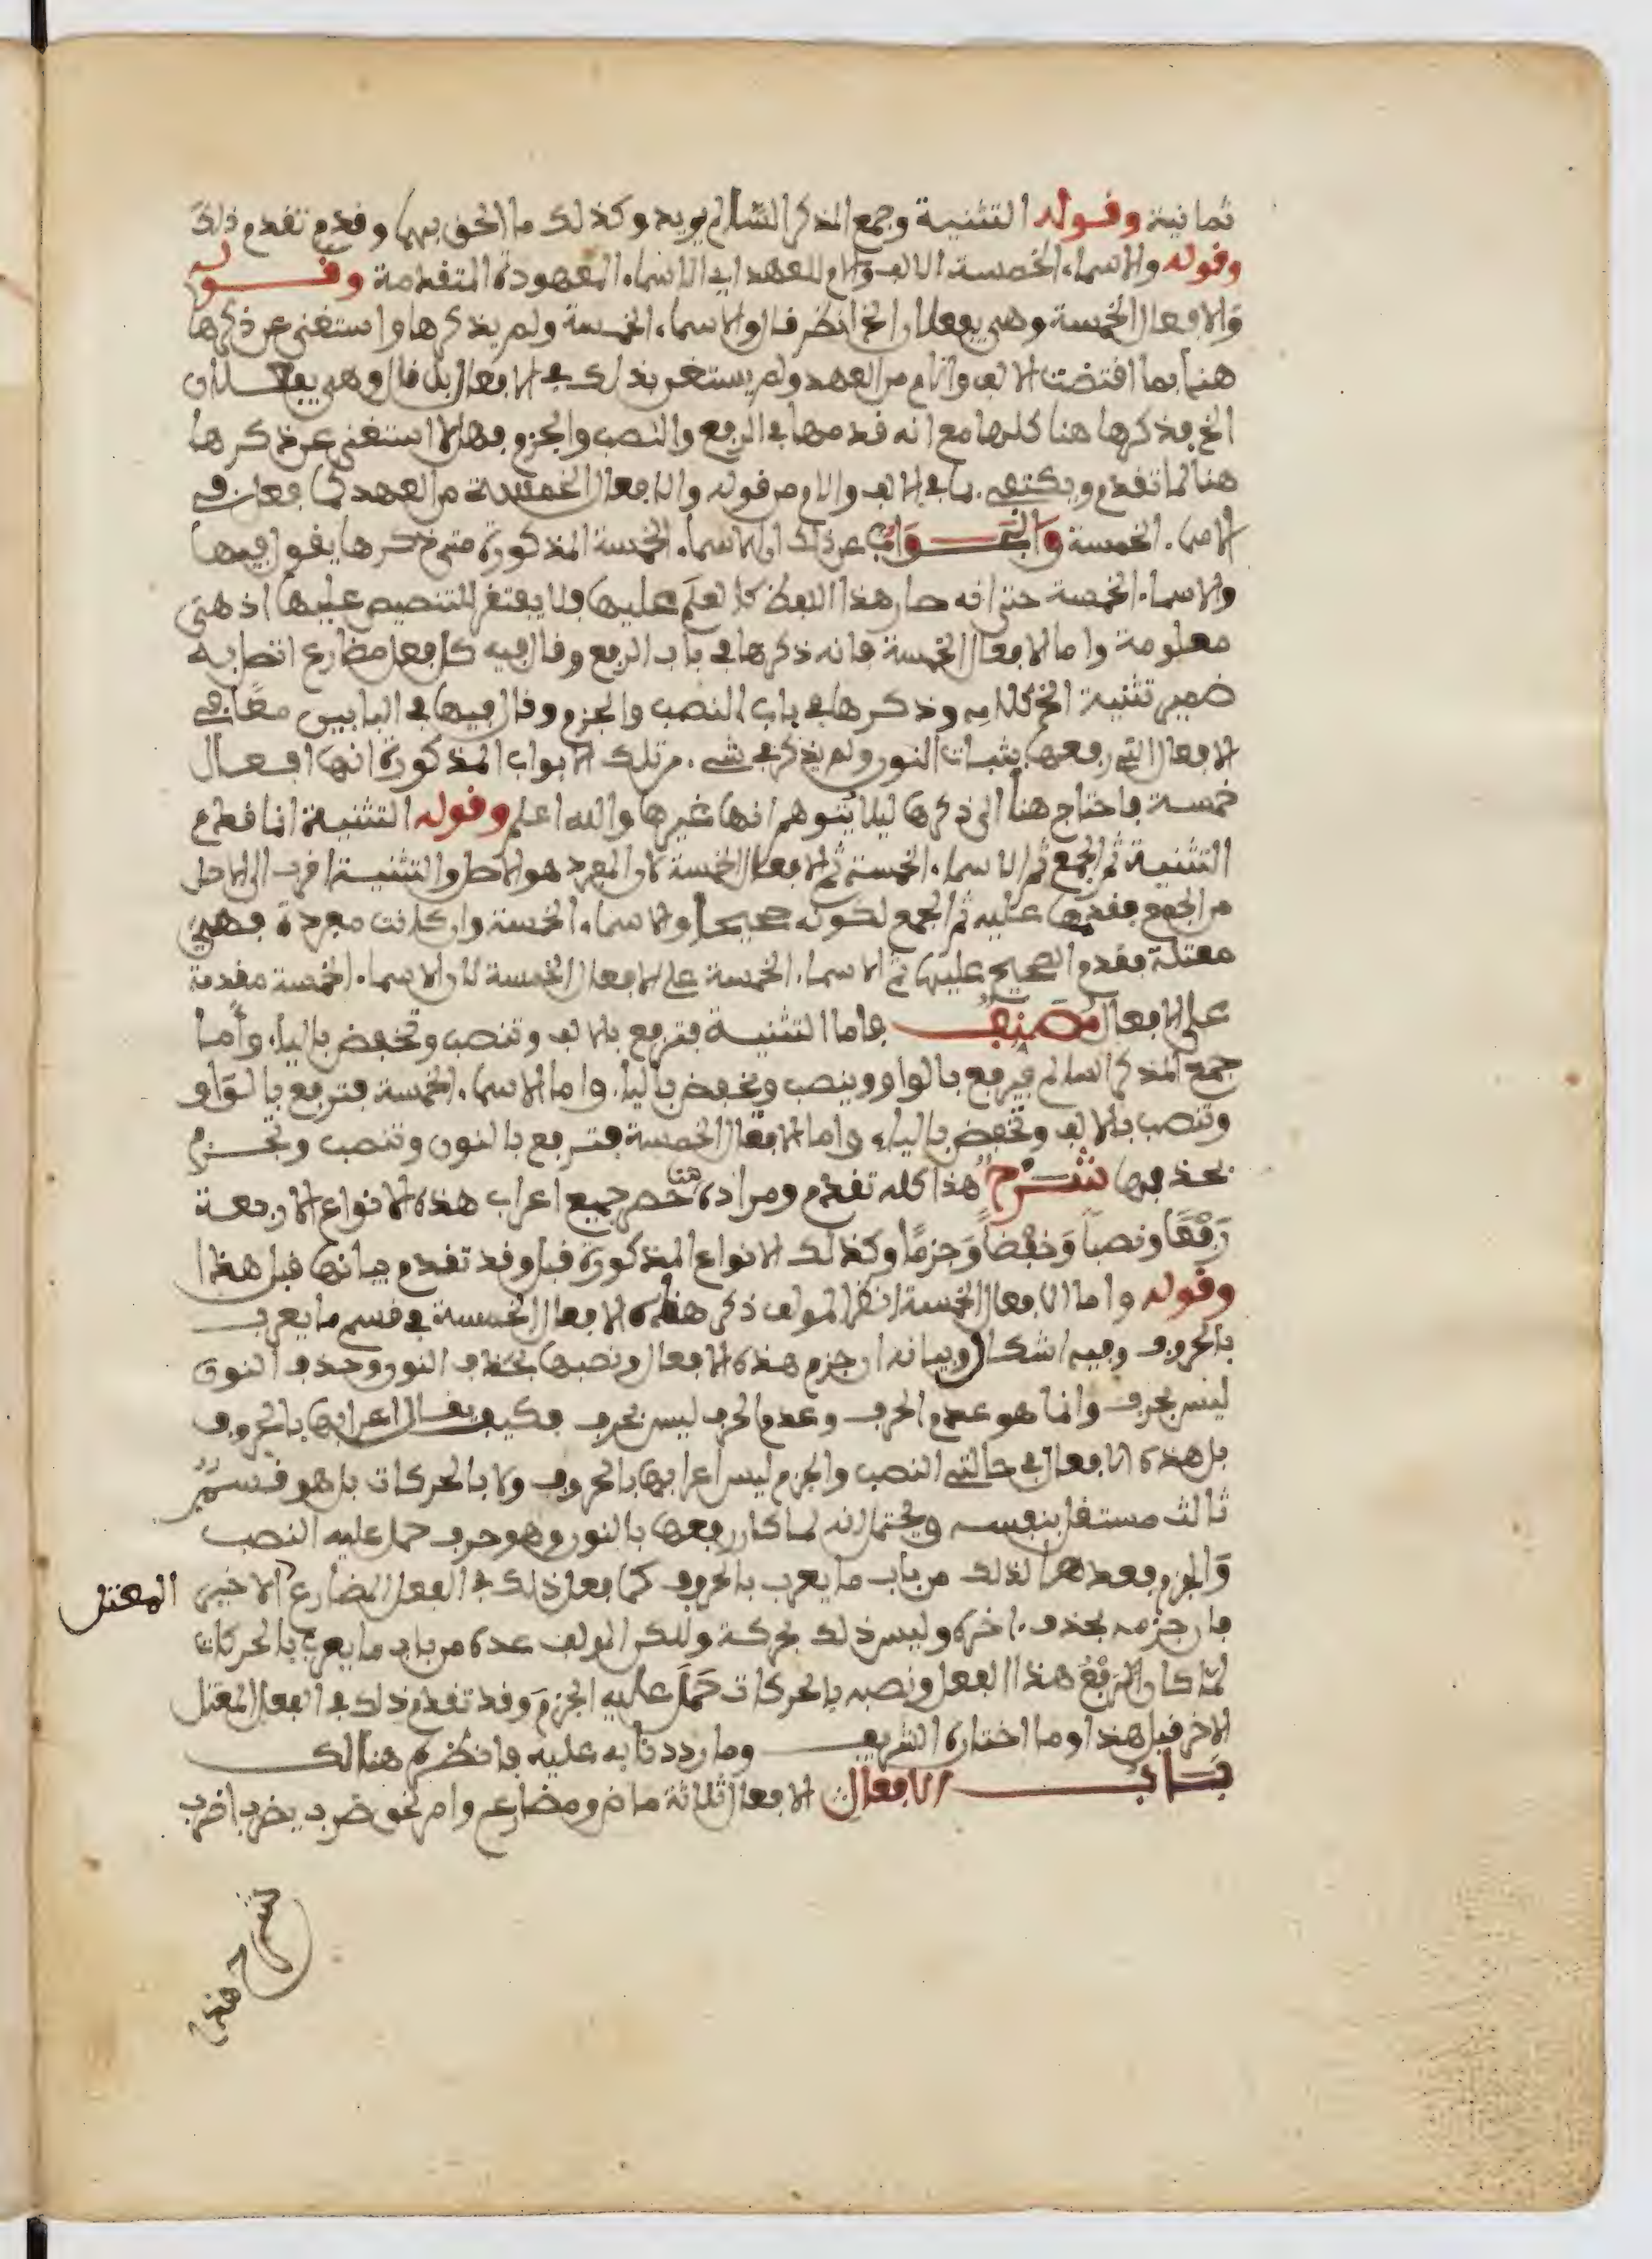 ثمانية وقوله التثنية وجمع المذكر السالم يريد وكذلك ما الحق بهما وقدم تقدم ذلك
وقوله والاسماء الخمسة الالف والام للعهد اي الاسماء المعهودة المتقدمة وقوله
والافعال الخمسة وهي يفعلان الخ انظر قال والاسماء الخمسة ولم يذكرها واستغنى عن ذكرها
هنا بما اقتضت الالف والام من العهد ولم يستغن بذلك في الافعال بل قال وهي يفعلان
الخ فذكرها هنا كلها مع انه قدمها في الرفع والنصب والجزم فهلا استغنى عن ذكرها
هنا لما تقدم ويكتفي بما في الالف والام من قوله والافعال الخمسة من العهد كما فعل في
الاسماء الخمسة والجواب عن ذلك ان الاسماء الخمسة المذكورة متى ذكرها يقول فيها
والاسماء الخمسة حتى انه صار هذا اللفظ كالعلم عليها فلا يفتقر للتنصيص عليها اذ هي
معلومة واما الافعال الخمسة فانه ذكرها في باب الرفع وقال فيه كل فعل مضارع اتصل به
ضمير تثنية الخ كلامه وذكرها في باب النصب والجزم وقال فيها في البابين معا هي
الافعال التي رفعها بثبات النون ولم يذكر في شيء من تلك الابواب المذكورة انها افعال
خمسة فاحتاج هنا الى ذكرها ليلا يتوهم انها غيرها والله اعلم وقوله التثنية انما قدم
التثنية ثم الجمع ثم الاسماء الخمسة ثم الافعال الخمسة لان المفرد هو الاصل والتثنية اقرب الى الاصل
من الجمع فقدمها عليه ثم الجمع لكونه صحيحا والاسماء الخمسة وان كانت مفردة فهي
معتلة فقدم الصحيح عليها ثم الاسماء الخمسة على الافعال الخمسة لان الاسماء الخمسة مقدمة
على الافعال مصنف فاما التثنية فترفع بالالف وتنصب وتخفض بالياء واما
جمع المذكر السالم فيرفع بالواو وينصب ويخفض بالياء واما الاسماء الخمسة فترفع بالواو
وتنصب بالالف وتخفض بالياء واما الافعال الخمسة فترفع بالنون وتنصب وتجزم
بحذفها شرح هذا كله تقدم ومراده هنا حصر جميع اعراب هذه الانواع الاربعة
رَفْعًا ونصبًا وَخفضًا وَجزمًا وكذلك الانواع المذكورة قبل وقد تقدم بيانها قبل هذا
وقوله واما الافعال الخمسة انظر المولف ذكر هذه الافعال الخمسة في قسم ما يعرب
بالحروف وفيه اشكال وبيانه ان جزم هذه الافعال ونصبها بحذف النون وحذف النون
ليس بحرف وانما هو عدم الحرف وعدم الحرف ليس بحرف فكيف يقال اعرابها بالحروف
بل هذه الافعال في حالتي النصب والجزم ليس اعرابها بالحروف ولا بالحركات بل هو قسم
ثالث مستقل بنفسه ويحتمل انه لما كان رفعها بالنون وهو حرف حمل عليه النصب
والجزم فعدها لذلك من باب ما يعرب بالحروف كما فعل ذلك في الفعل المضارع الاخير المعتل
فان جزمه بحذف ءاخره وليس ذلك بحركة ولكن المولف عده من باب ما يعرب بالحركات
لمّا كان الرفعُ هذا الفعل ونصبه بالحركات حَمَلَ عليه الجزمَ وقد تقدم ذلك في الفعل المعتل
الاخر قبل هذا وما اختاره الشريف وما رددنا به عليه فانظره هنالك
باب الافعال الافعال ثلاثة ماض ومضارع وامر نحو ضرب يضرب اضرب
شرح